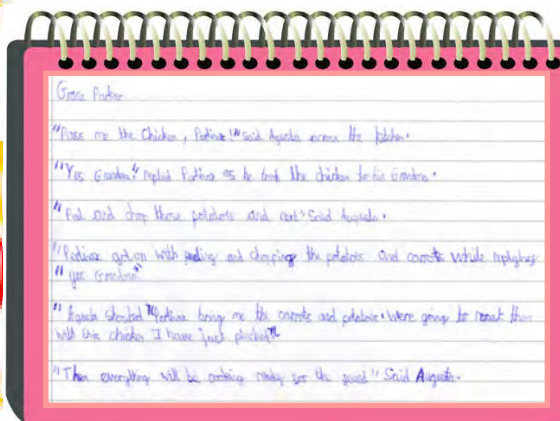 Grace Parker
"Pass me the Chicken, Perdinar!" said Augusta across the kitchen.
"Yes Grandma," replied Perdinar as he took the chicken to his Grandma.
"Peel and chop those potatoes and" Said Augusta.
"Perdinar got on with peeling and chopping the potatoes and carrots while replying
"yes Grandma"
"Augusta Shouted "Perdinar bring me the carrots and potatoes. Were going to roast them
with this chicken I have just plucked"
"Then everything will be cooking ready for the" Said Augusta.